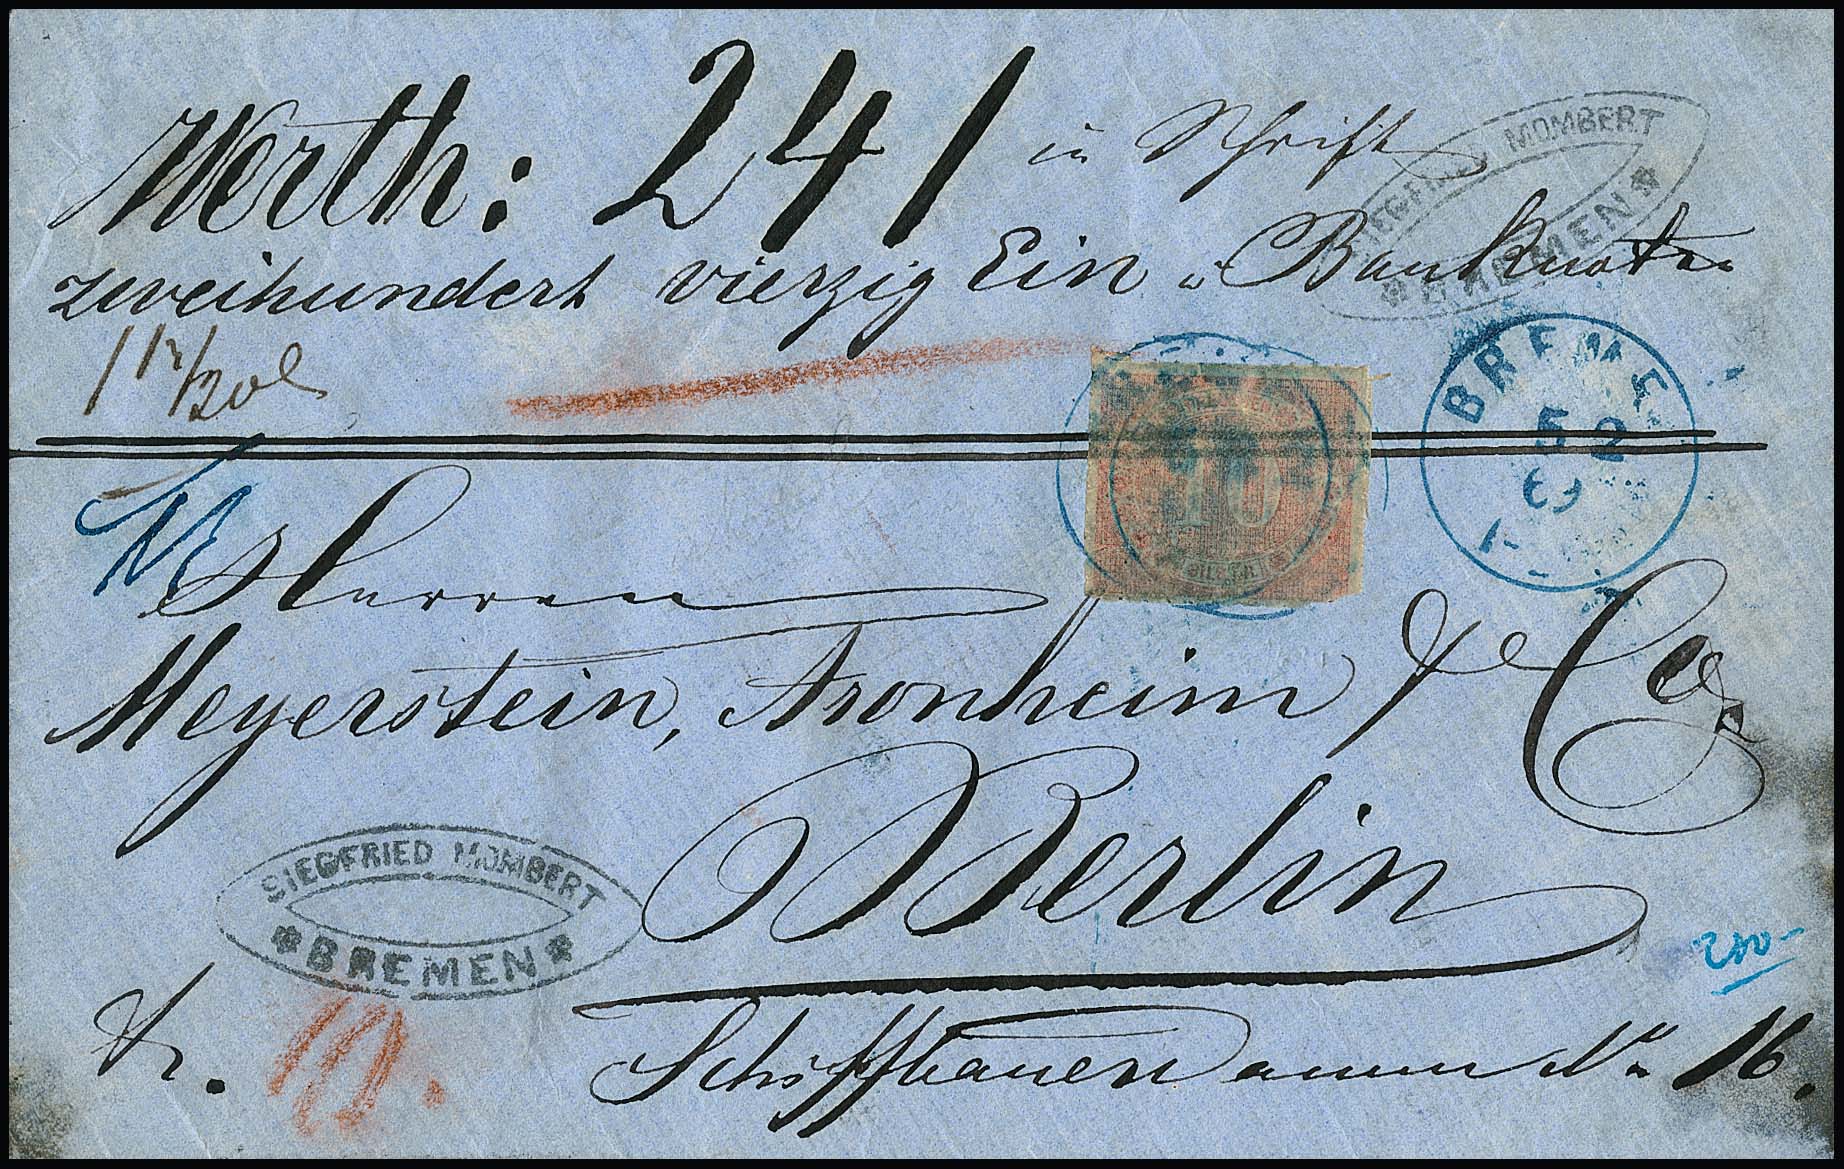 Werth: 241 in Schrift
zweihundert vierzig Ein u Banknoten
SIEGFRIED MOMBERT
* BREMEN *
BREMEN
5 2
69
10
Herren
Meyerstein, Aronheim & Co
Berlin
SIEGFRIED MOMBERT
* BREMEN *
fr.
Schiffbauerdamm No 16.